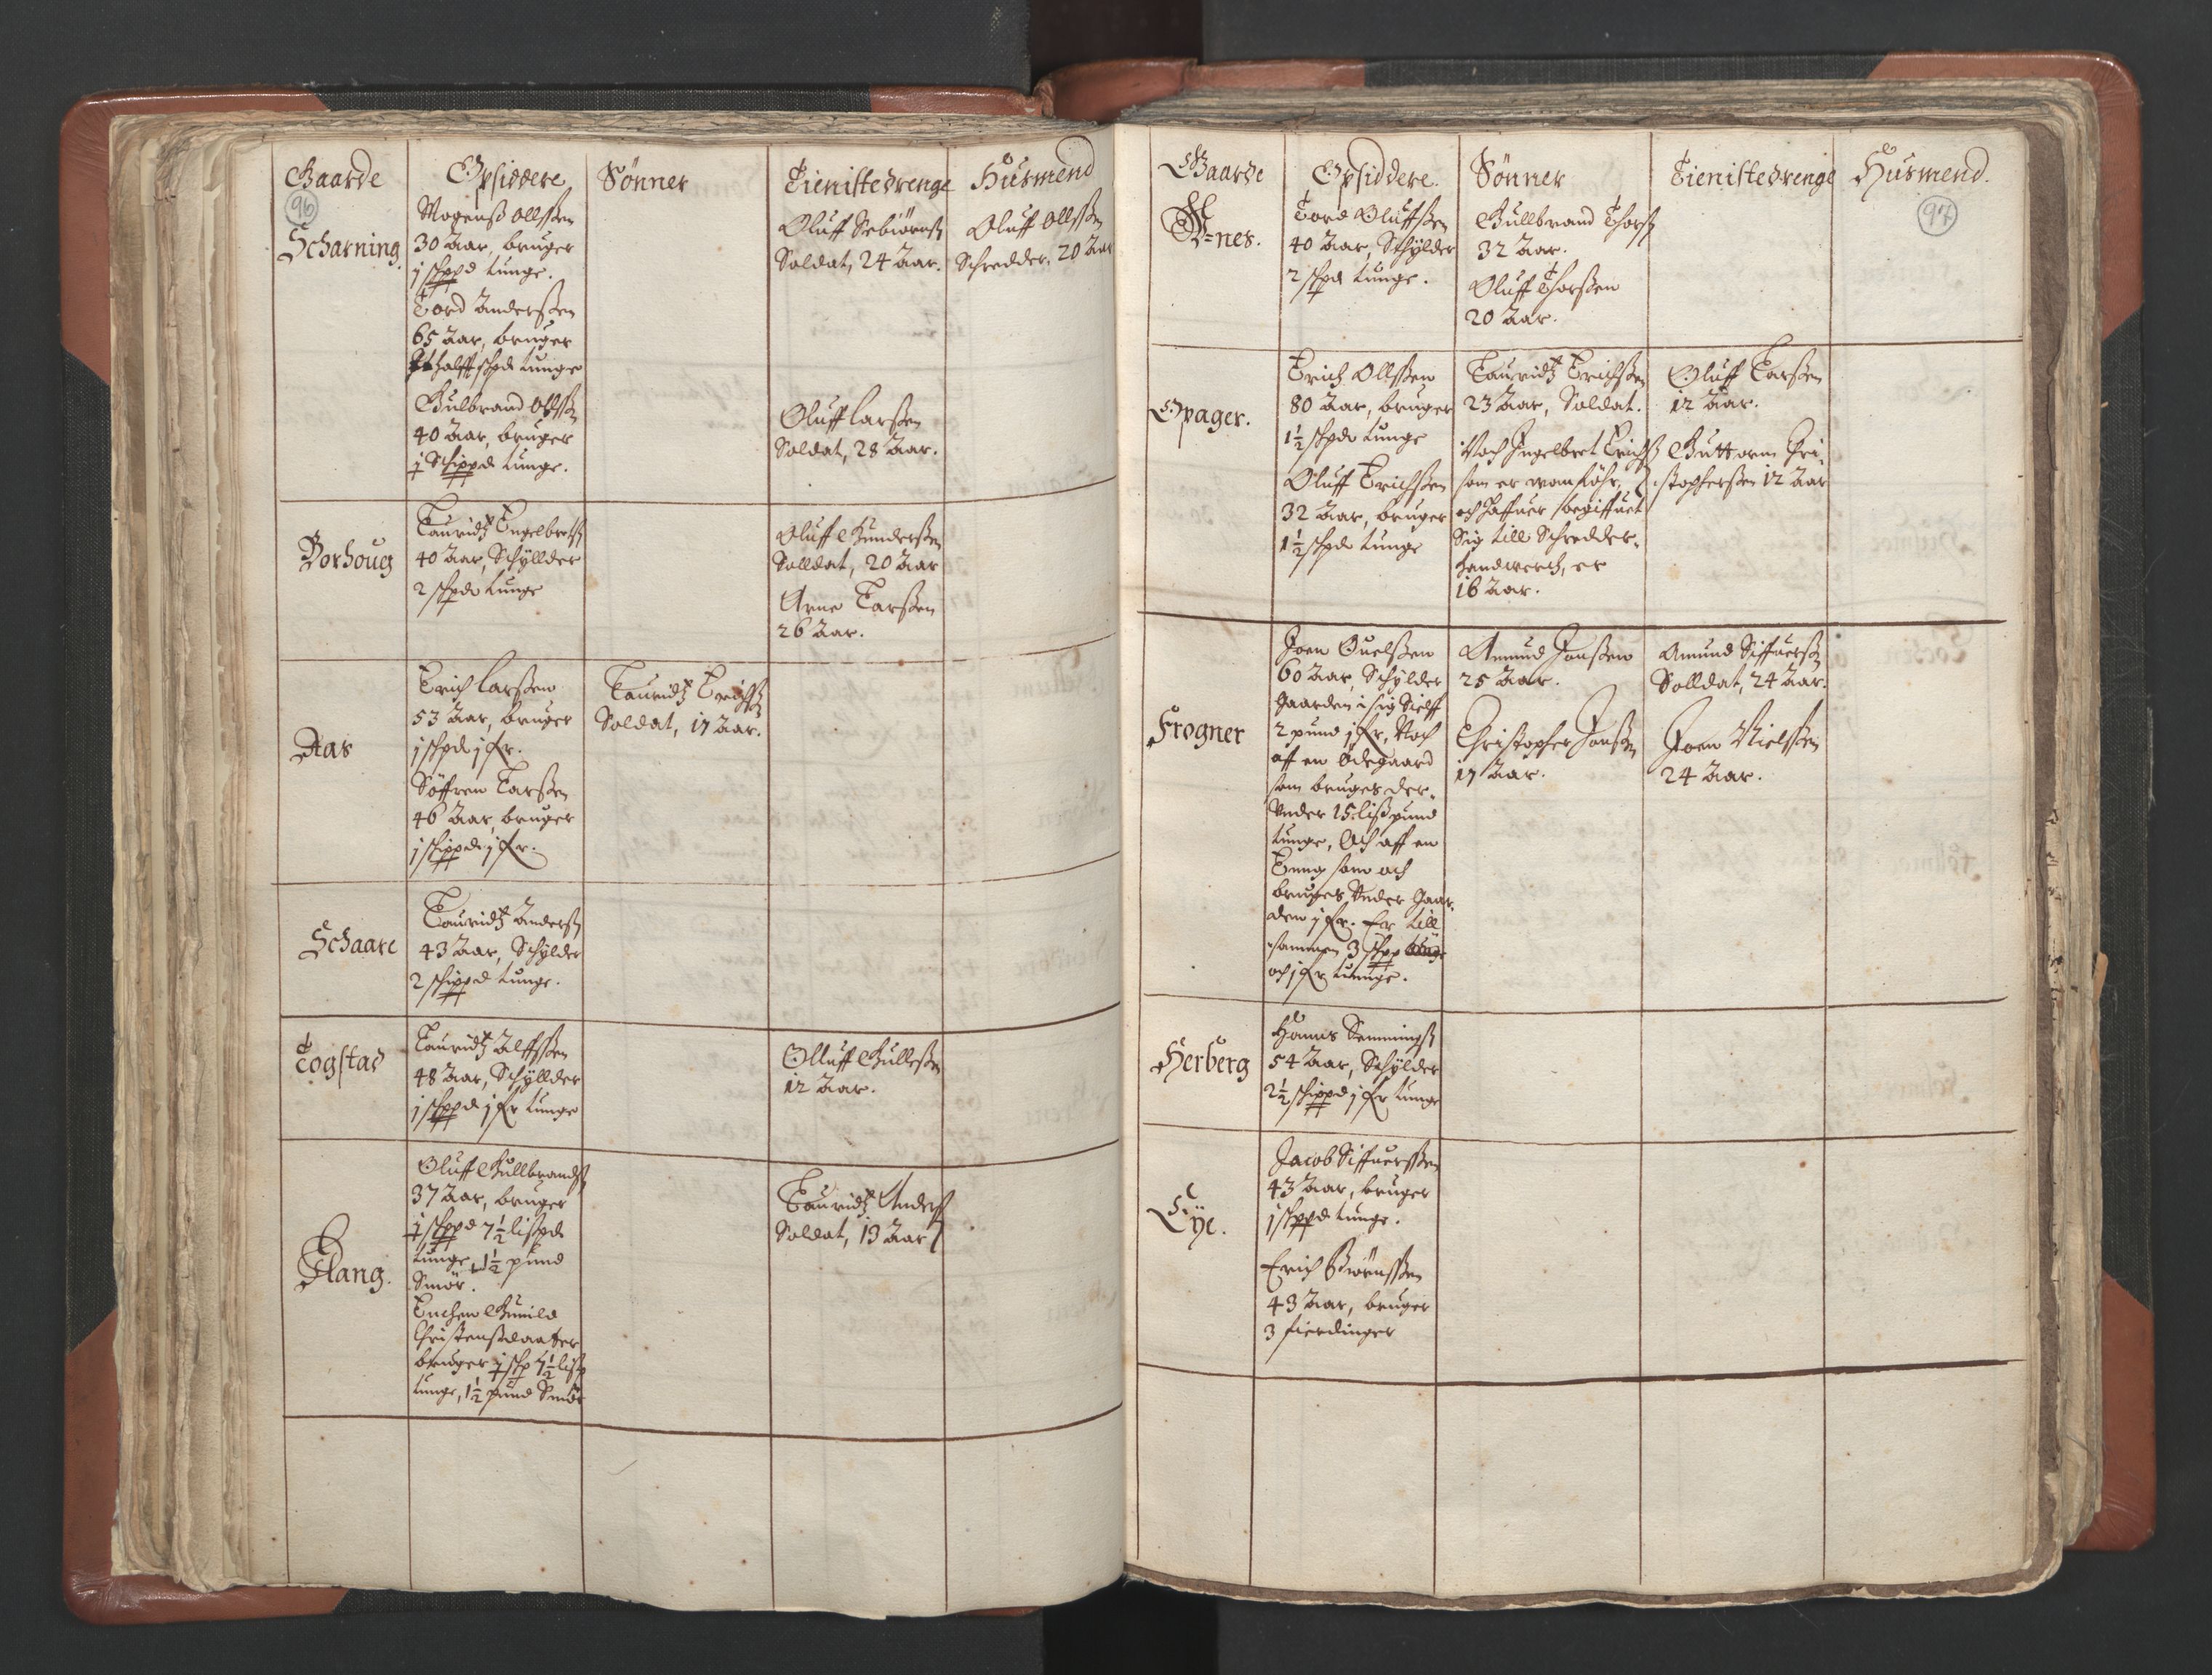 Gaarde
Opsiddere
Sönner
Tienistedrenge
Husmend
96
Scharning.
Mogenß Ollßen
30 Aar, bruger
j schppd tunge.
Tord Anderßen
65 Aar, bruger
halfft schpd tunge
Gulbrand Ollß
40 Aar, bruger
j Schippd tunge.
Oluff Sebiörnß
Soldat, 24 Aar.
Oluff Larßen
Soldat, 28 Aar.
Oluff Ollßen
Schredder, 20 Aar
Borhoug
Lauridtz Engelbretß
40 Aar, Schyllder
2 schpd tunge
Oluff Gunderßen
Solldat, 20 Aar
Arne Larßen
26 Aar.
Aas
Erich Larßen
53 Aar, bruger
j schpd j fr.
Söffren Larßen
46 Aar, bruger
j schippd j fr.
Lauridtz Erichß
Soldat, 17 Aar.
Schaare
Lauridtz Anderß
43 Aar, Schylder
2 schippd tunge.
Togstad
Lauridtz Alffßen
48 Aar, Schyllder
j schppd j fr tunge
Olluff Gulleßen
12 Aar.
Flang.
Oluff Gullbrandß
37 Aar, bruger
j schppd 7½ lispd
tunge, 1½ pund
Smör.
Enchen Gunild
Christensdaatter
bruger j schp 7½ lisp
tunge, 1½ pund Smör
Gaarde
Opsiddere.
Sönner
Tienistedrenge
Husmend.
97
nes.
Tord Oluffßen
40 Aar, Schylder
2 schpd tunge.
Gullbrand Thorß
32 Aar.
Oluff Thorßen
20 Aar.
Opager.
Erich Ollßen
80 Aar, bruger
1½ schpd tunge
Oluff Erichßen
32 Aar, bruger
1½ schpd tunge
Lauridtz Erichßen
23 Aar, Soldat.
Noch Ingelbret Erichß
som er wanföhr,
och haffuer begiffuet
Sig till Schredder-
handwerch, er
16 Aar.
Oluff Larßen
12 Aar.
Guttorm Cri-
stopherßen 12 Aar
Frogner
Joen Ouelßen
60 Aar, Schylder
Gaarden i sig Sielff
2 pund j fr, Noch
aff en Ödegaard
som bruges der-
Vnder 15 lißpund
tunge, Och aff en
Eeng som och
bruges Vnder Gaar-
den j fr. Er till
sammen 3 schpp
och j fr tunnge.
Amund Jonßen
25 Aar.
Christopher Jonßen
17 Aar.
Amund Siffuerß
Solldat, 24 Aar.
Joen Nielßen
24 Aar.
Herberg
Hanns Semmingß
54 Aar, Schylder
2½ schippd j fr tunge
Eye.
Jacob Siffuerßen
43 Aar, bruger
j schppd tunge.
Erich Biörnßen
43 Aar, bruger
3 fierdinger
Lauridtz Anderß
Soldat, 13 Aar